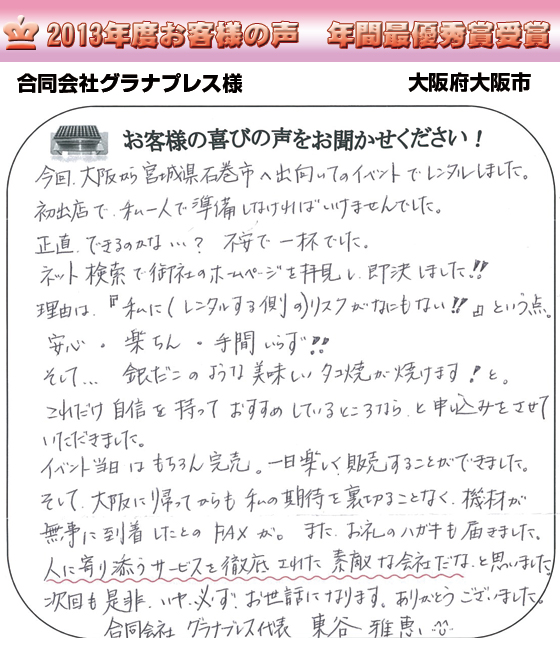 2013年度お客様の声 年間最優秀賞受賞
合同会社グラナプレス様 大阪府大阪市
お客様の喜びの声をお聞かせください!
今回、大阪から宮城県石巻市へ出向いてのイベントでレンタルしました。
初出店で、私一人で準備しなければいけませんでした。
正直、できるのかな…? 不安で一杯でした。
ネット検索で御社のホームページを拝見し、即決しました!!
理由は、『私に(レンタルする側の)リスクがなにもない!!』という点。
安心・楽ちん・手間いらず!!
そして… 銀だこのような美味しいタコ焼が焼けます!と。
これだけ自信を持っておすすめしているところなら、と申込みをさせて
いただきました。
イベント当日はもちろん完売。一日楽しく販売することができました。
そして、大阪に帰ってからも私の期待を裏切ることなく、機材が
無事に到着したとのFAXが。また、お礼のハガキも届きました。
人に寄り添うサービスを徹底された素敵な会社だな、と思いました
次回も是非、いや、必ず!お世話になります。ありがとうございました。
合同会社 グラナプレス代表 東谷 雅恵